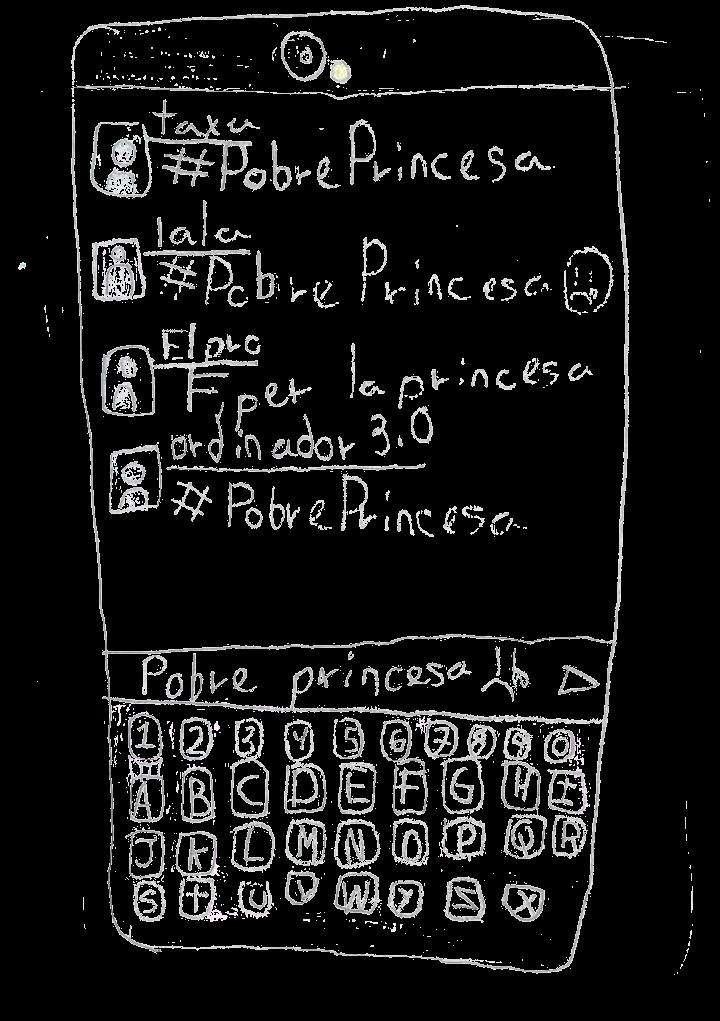 taxa
#PobrePrincesa
lala
#Pobre Princesa
Elpro
F, per la princesa
ordinador 3.0
#PobrePrincesa
Pobre princesa
1 2 3 4 5 6 7 8 9 0
A B C D E F G H I
J K L M N O P Q R
S T U V W Y Z X